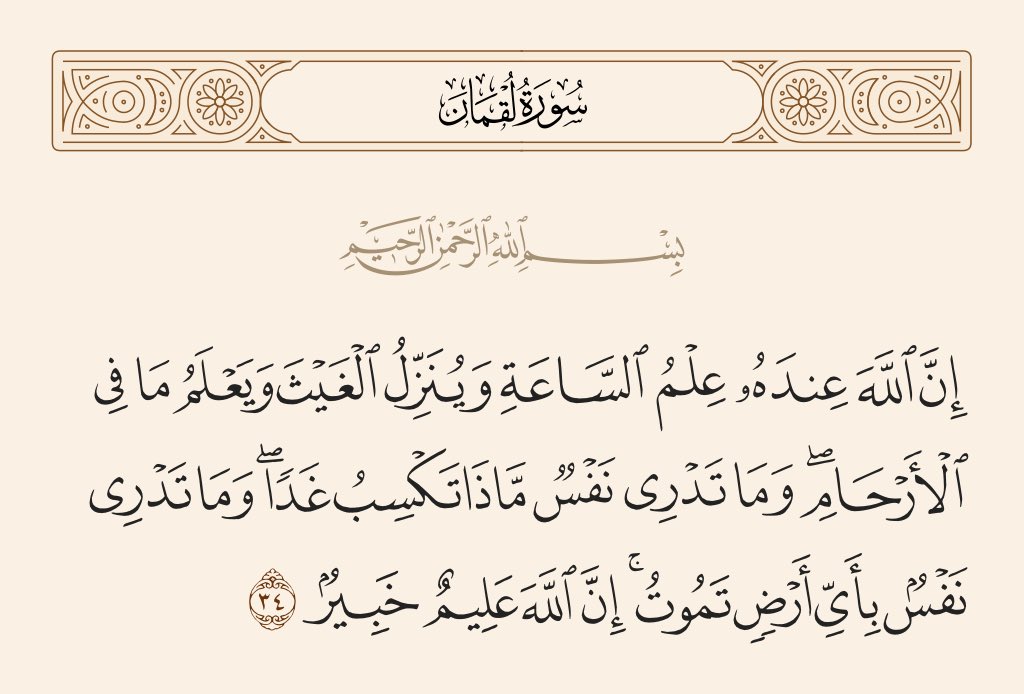 سُورَةُ لُقْمَان
بِسْمِ ٱللَّهِ ٱلرَّحْمَٰنِ ٱلرَّحِيمِ
إِنَّ ٱللَّهَ عِندَهُۥ عِلْمُ ٱلسَّاعَةِ وَيُنَزِّلُ ٱلْغَيْثَ وَيَعْلَمُ مَا فِى
ٱلْأَرْحَامِ ۖ وَمَا تَدْرِى نَفْسٌ مَّاذَا تَكْسِبُ غَدًا ۖ وَمَا تَدْرِى
نَفْسٌۢ بِأَىِّ أَرْضٍ تَمُوتُ ۚ إِنَّ ٱللَّهَ عَلِيمٌ خَبِيرٌۢ ٣٤